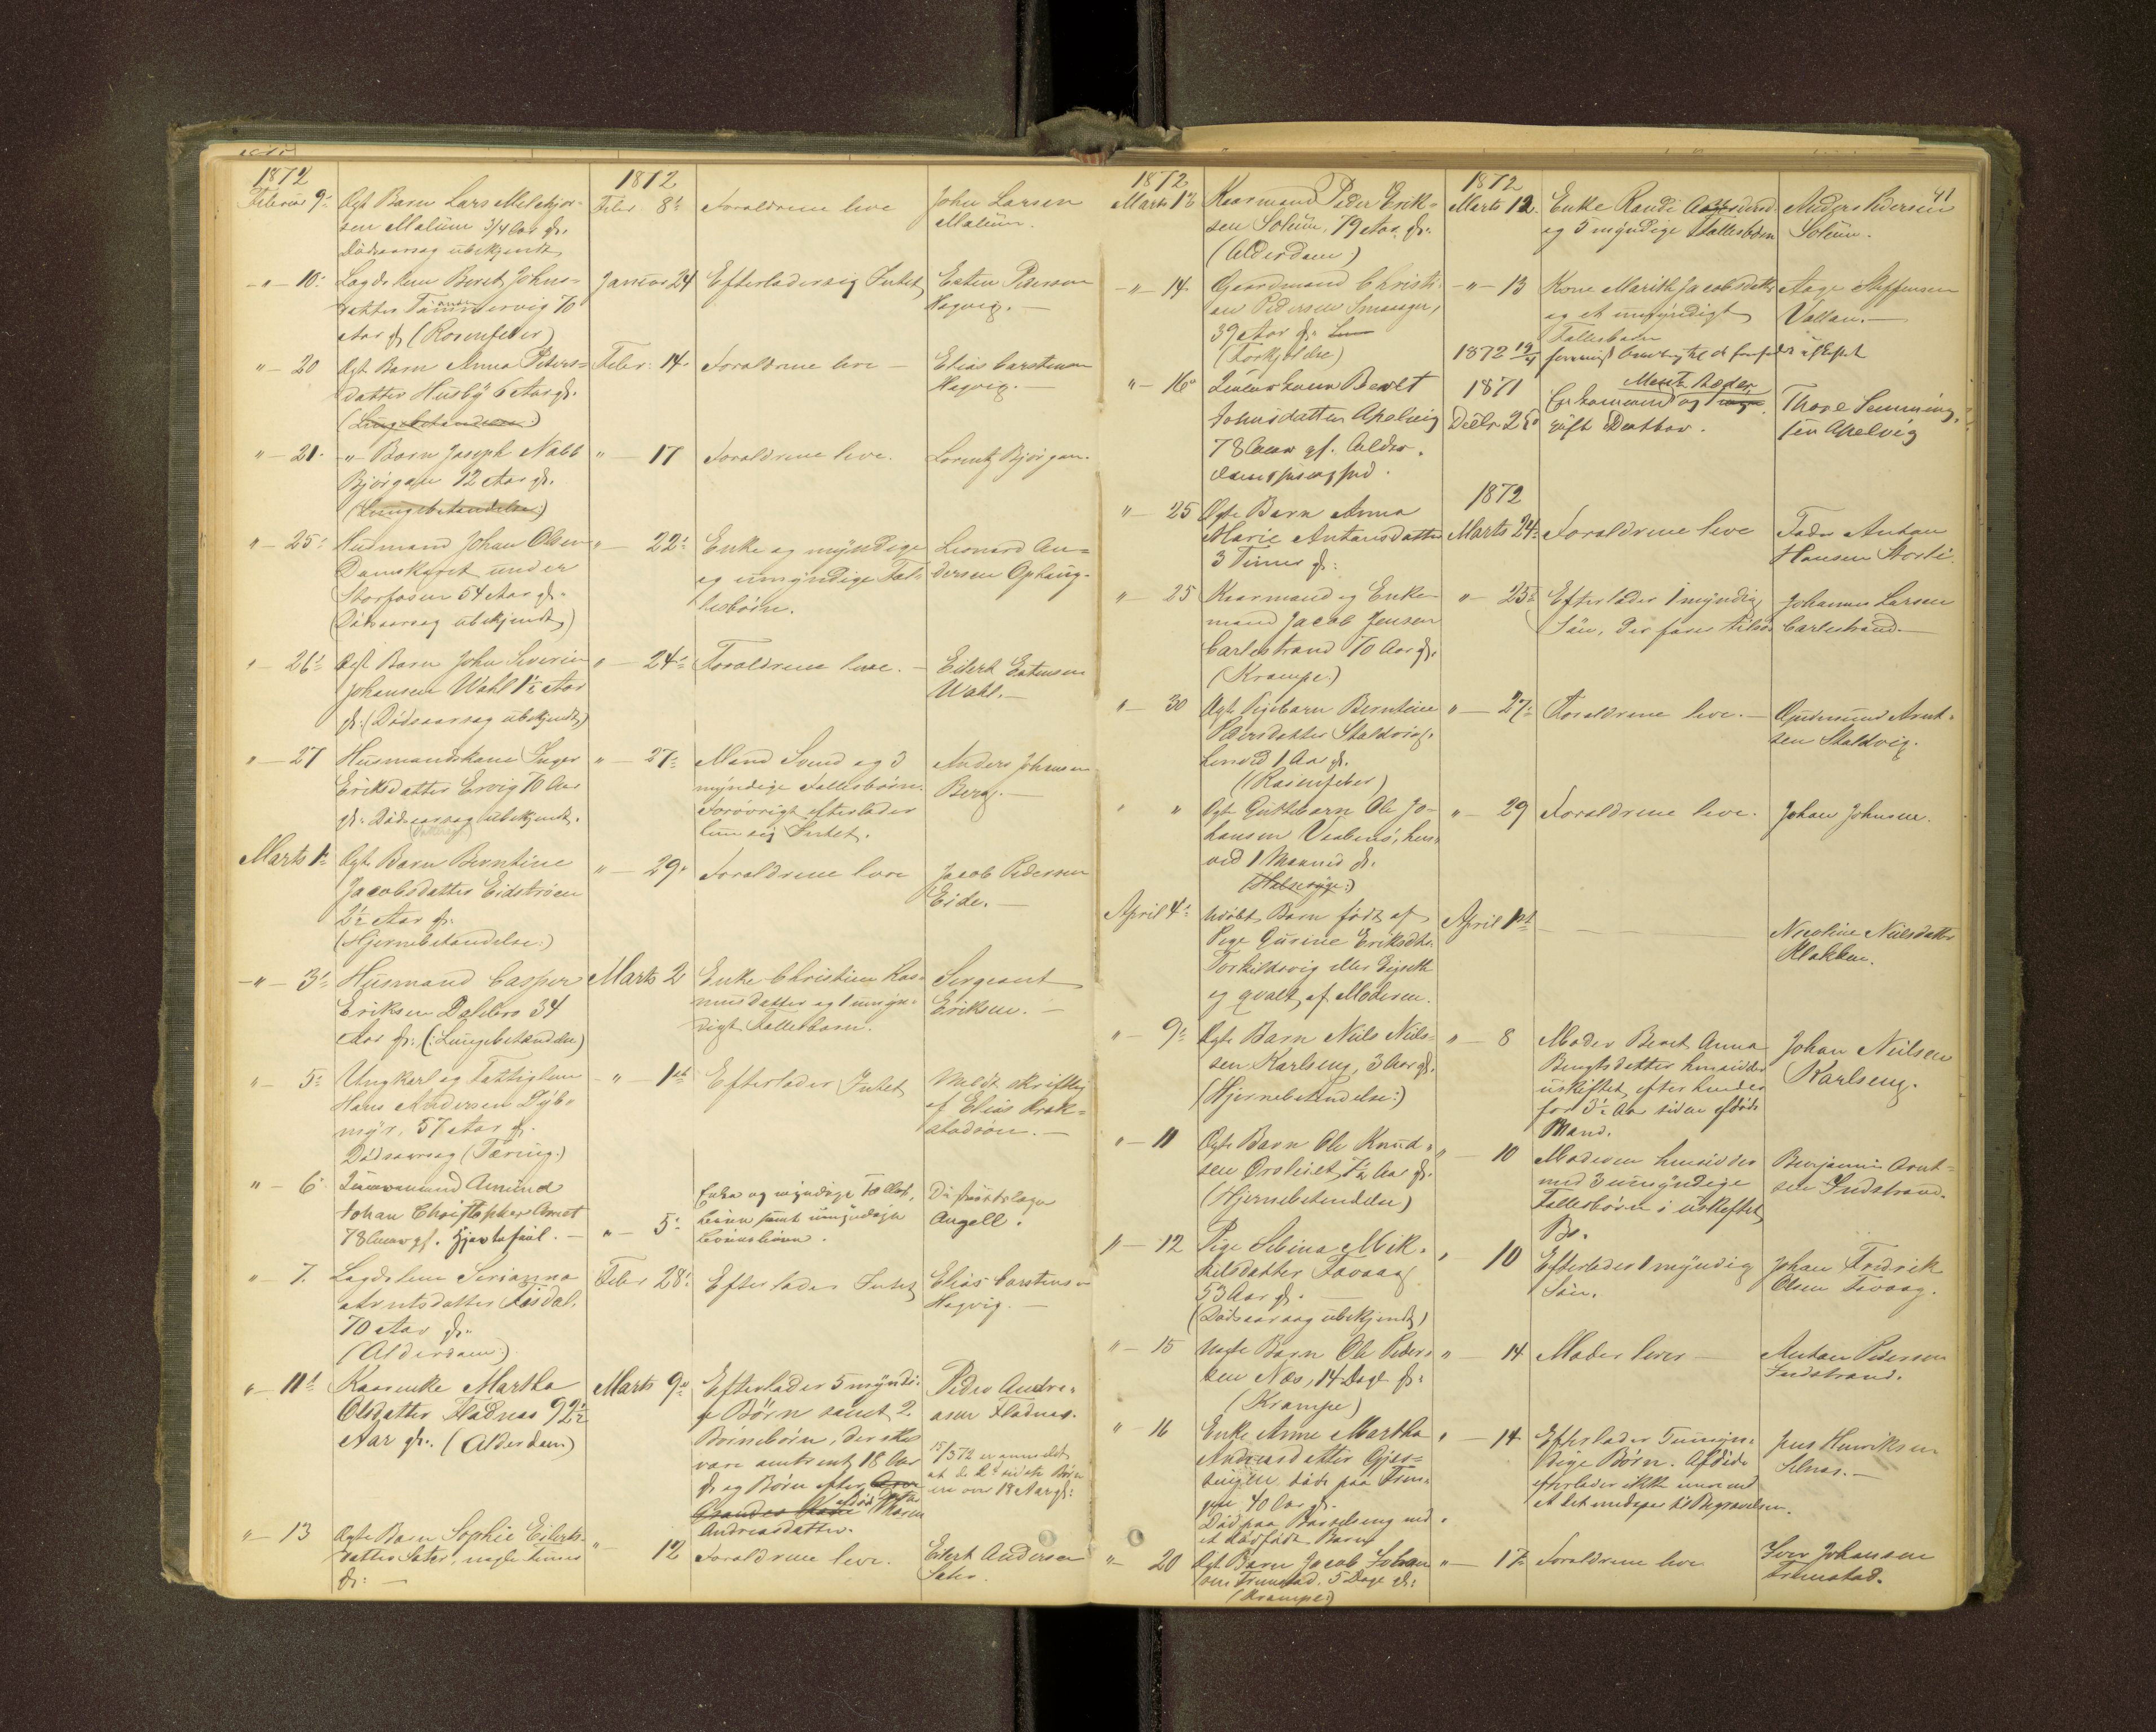 1872
Februar 9
Ægt Barn Lars Melchjor-
sen Malum 3/4 Aar gl.
Dødsaarsag ubekjendt
1872
Febr 8
Forældrene leve
John Larsen
Malum.
-"- 10
Lægdslem Beret Johns-
datter 70
Aar gl (Rosenfeber)
Januar 24
Efterlader sig Intet
Esten Petersen
Hegvig.
" - 20
Ægt Barn Anna Peters-
datter Husby 6 Aar gl.
(Lungebetændelse)
Febr. 14
Forældrene leve
Elias Carstensen
Hegvig.
" - 21
-"- Barn Joseph Nabb
Bjørgan 12 Aar gl.
(Lungebetændelse)
" - 17
Forældrene leve.
Lorentz Bjørgan.
" - 25
Husmand Johan Olsen
Damskaret under
Storfosen 54 Aar gl.
(Dødsaarsag ubekjendt)
" - 22
Enke og myndige
og umyndige Fæl-
lesbørn.
Leonard An-
dersen Ophaug.
" - 26
Ægt Barn John Severin
Johansen Wahl 1½ Aar
gl. (Dødsaarsag ubekjendt)
" - 24
Forældrene leve.
Eilert Estensen
Wahl.
" - 27
Husmandskone Inger
Eriksdatter Ervig 70 Aar
gl. Dødsaarsag ubekjendt.
" - 27
Mand Svend og 3
myndige Fællesbørn.
Forøvrigt efterlader
hun sig Intet.
Anders Johnsen
Berg.
Marts 1
Ægt Barn Berntine
Jacobsdatter Eidstrøen
2½ Aar gl.
(Hjernebetændelse)
" - 29
Forældrene leve
Jacob Pedersen
Eide.
-"- 3
Husmand Casper
Eriksen Dalbro 34
Aar gl. (Lungebetændelse)
Marts 2
Enke Christine Ras-
musdatter og 1 umyn-
digt Fællesbarn.
Sergeant
Eriksen.
" - 5
Ungkarl og Fattiglem
Hans Andersen Dyb-
myr, 57 Aar gl.
Dødsaarsag (Tæring)
" - 1ste
Efterlader Intet
Meldt skriftlig
af Elias Krak-
" - 6
Amund
Johan Christopher Arnet
78 Aar gl. Hjertefeil.
" - 5
Enke og myndige
Børn samt umyndige
Børnebørn.
Distriktslæge
Angell.
" - 7
Lægdslem Serianna
Arntsdatter
70 Aar gl.
(Alderdom)
Febr 28
Efterlader Intet
Elias Carstensen
Hegvig.
" - 11
Kaarenke Martha
Olsdatter Fladnes 92½
Aar gl. (Alderdom)
Marts 9
Efterlader 5 myndi-
ge Børn samt 2
Børnebørn, der skal
være omtrent 18 Aar
gl og Børn efter
Andreasdatter.
Peder Andre-
asen Fladnes.
15/3 72 er anmeldt
at de 2 sidste Børn
ere over 18 Aar gl.
" - 13
Ægte Barn Sophie Eilerts-
datter Sæter, nogle Timer
gl.
" - 12
Forældrene leve.
Eilert Andersen
Sæter.
41
1872
Marts 13
Kaarmand Peder Erik-
sen Soleim, 79 Aar gl.
(Alderdom)
1872
Marts 12.
Enke Randi
og 5 myndige Fællesbørn
Anders Pedersen
Soleim.
-"- 14
Gaardmand Christi-
an Pedersen Smaaager,
39 Aar gl.
(Forkjølelse)
-"- 13
Kone Marith Jacobsdatter
og et umyndigt
Fællesbarn
1872 19/4
Aage Steffensen
Vallan.
" - 16
Beret
Johnsdatter Apelvig
78 Aar gl. Alder-
1871
Decbr 25
Enkemand og
gift Datter.
Thore Semming-
sen Apelvig
" - 25
Ægte Barn Anna
Marie Antonsdatter
3 Timer gl.
1872
Marts 24
Forældrene leve
Fader Anton
Hansen Storli.
" - 25
Kaarmand og Enke-
mand Jacob Jensen
Carlestrand 70 Aar gl.
(Krampe)
" - 25
Efterlader 1 myndig
Søn,
Johannes Larsen
Carlestrand.
" - 30
Ægt Pigebarn Berntine
Pedersdatter Skaldvig.
henved 1 Aar gl.
(Rosenfeber)
" - 27
Forældrene leve.
Gudmund Arnt-
sen Skaldvig.
" "
Ægte Guttebarn Ole Jo-
hansen hen-
ved 1 Maaned gl.
(Halssyge)
" - 29
Forældrene leve.
Johan Johnsen.
April 4
Udøbt Barn født af
Pige Gurine Eriksdtr.
Torkildsvig eller Eigseth
og qvalt af Moderen.
April 1ste
Nicoline Nielsdatter
Klakken.
" - 9
Ægte Barn Niels Niels-
sen Karlseng, 3 Aar gl.
(Hjernebetændelse)
" - 8
Moder Beret Anna
Bengtsdatter hensidder
uskiftet efter hendes
for 3½ Aar siden afdøde
Mand.
Johan Nielsen
Karlseng.
" - 11
Ægte Barn Ole Knud-
sen 7½ Aar gl.
(Hjernebetændelse)
" - 10
Moderen hensidder
med 3 umyndige
Fællesbørn i uskiftet
Bo.
Benjamin Arnt-
sen Indstrand.
" - 12
Pige Sibina Mik-
kelsdatter Tavaag
53 Aar gl.
(Dødsaarsag ubekjendt)
" - 10
Efterlader 1 myndig
Søn.
Johan Fredrik
Olsen Tavaag.
" - 15
Uægte Barn Ole Peder-
sen Næs, 14 Dage gl.
(Krampe)
" - 14
Moder lever
Anton Pedersen
Indstrand.
" - 16
Enke Anne Martha
Andreasdatter
40 Aar gl.
Død paa Barselseng med
et dødfødt Barn
" - 14
Efterlader umyn-
dige Børn. Afdøde
efterlader ikke mere end
at det medgaar til Begravelsen.
Jens Henriksen
Selnes.
" - 20
Ægt Barn Jacob Johan-
sen 5 Dage gl.
(Krampe)
" - 17
Forældrene leve
Iver Johansen